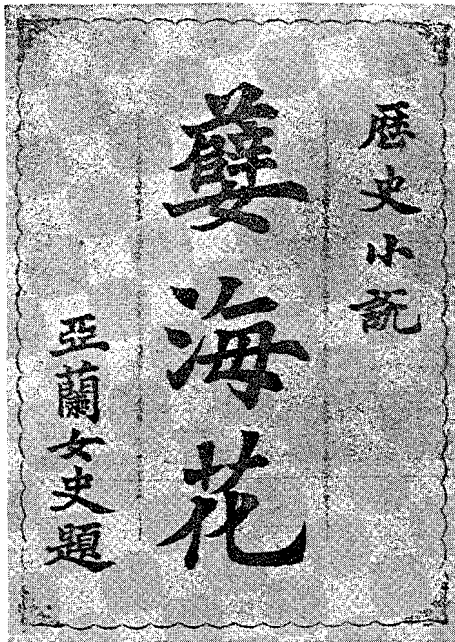 歷史小說
㜸海花
亞蘭女史題